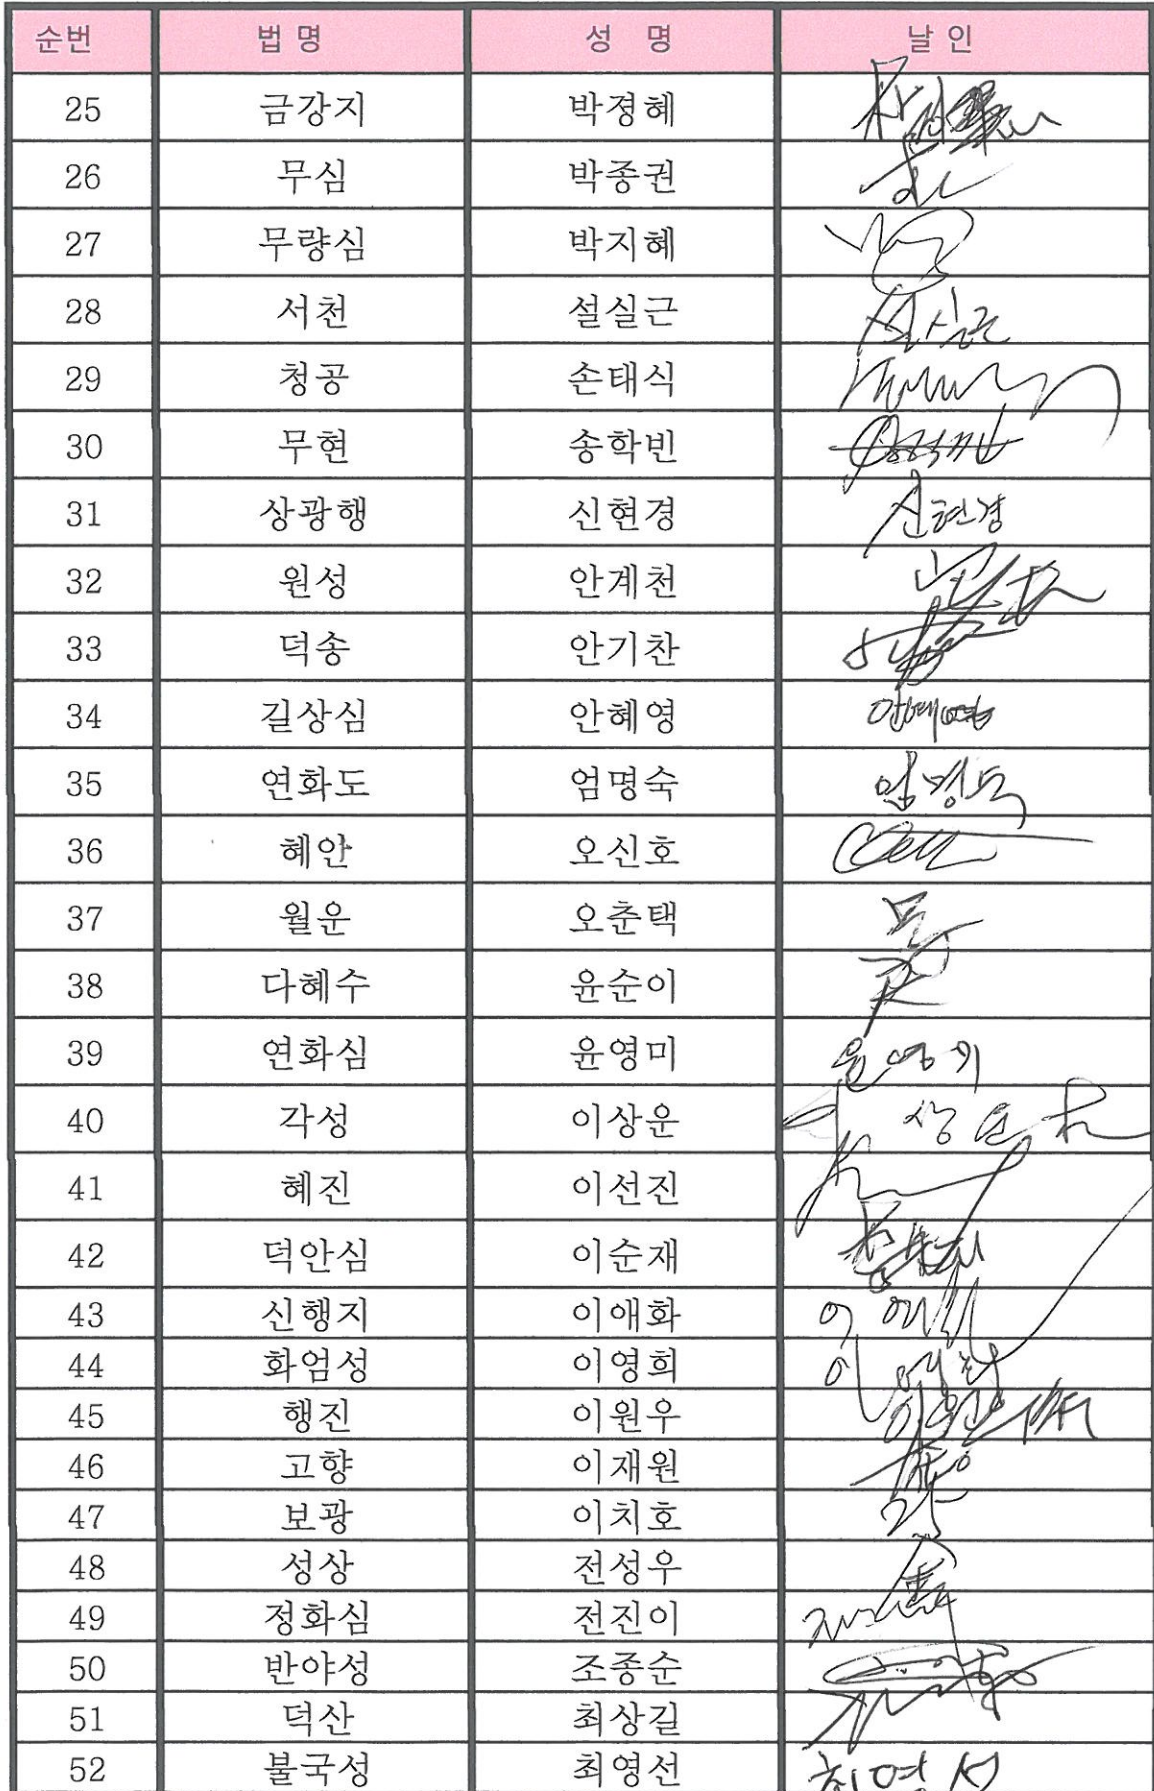 순번 법명 성 명 날인
25 금강지 박경혜
26 무심 박종권
27 무량심 박지혜
28 서천 설실근 설실근
29 청공 손태식
30 무현 송학빈
31 상광행 신현경 신현경
32 원성 안계천
33 덕송 안기찬
34 길상심 안혜영 안혜영
35 연화도 엄명숙 엄명숙
36 혜안 오신호
37 월운 오춘택
38 다혜수 윤순이
39 연화심 윤영미 윤영미
40 각성 이상운 상운
41 혜진 이선진
42 덕안심 이순재
43 신행지 이애화
44 화엄성 이영희
45 행진 이원우
46 고향 이재원
47 보광 이치호
48 성상 전성우
49 정화심 전진이
50 반야성 조종순
51 덕산 최상길
52 불국성 최영선 최영선